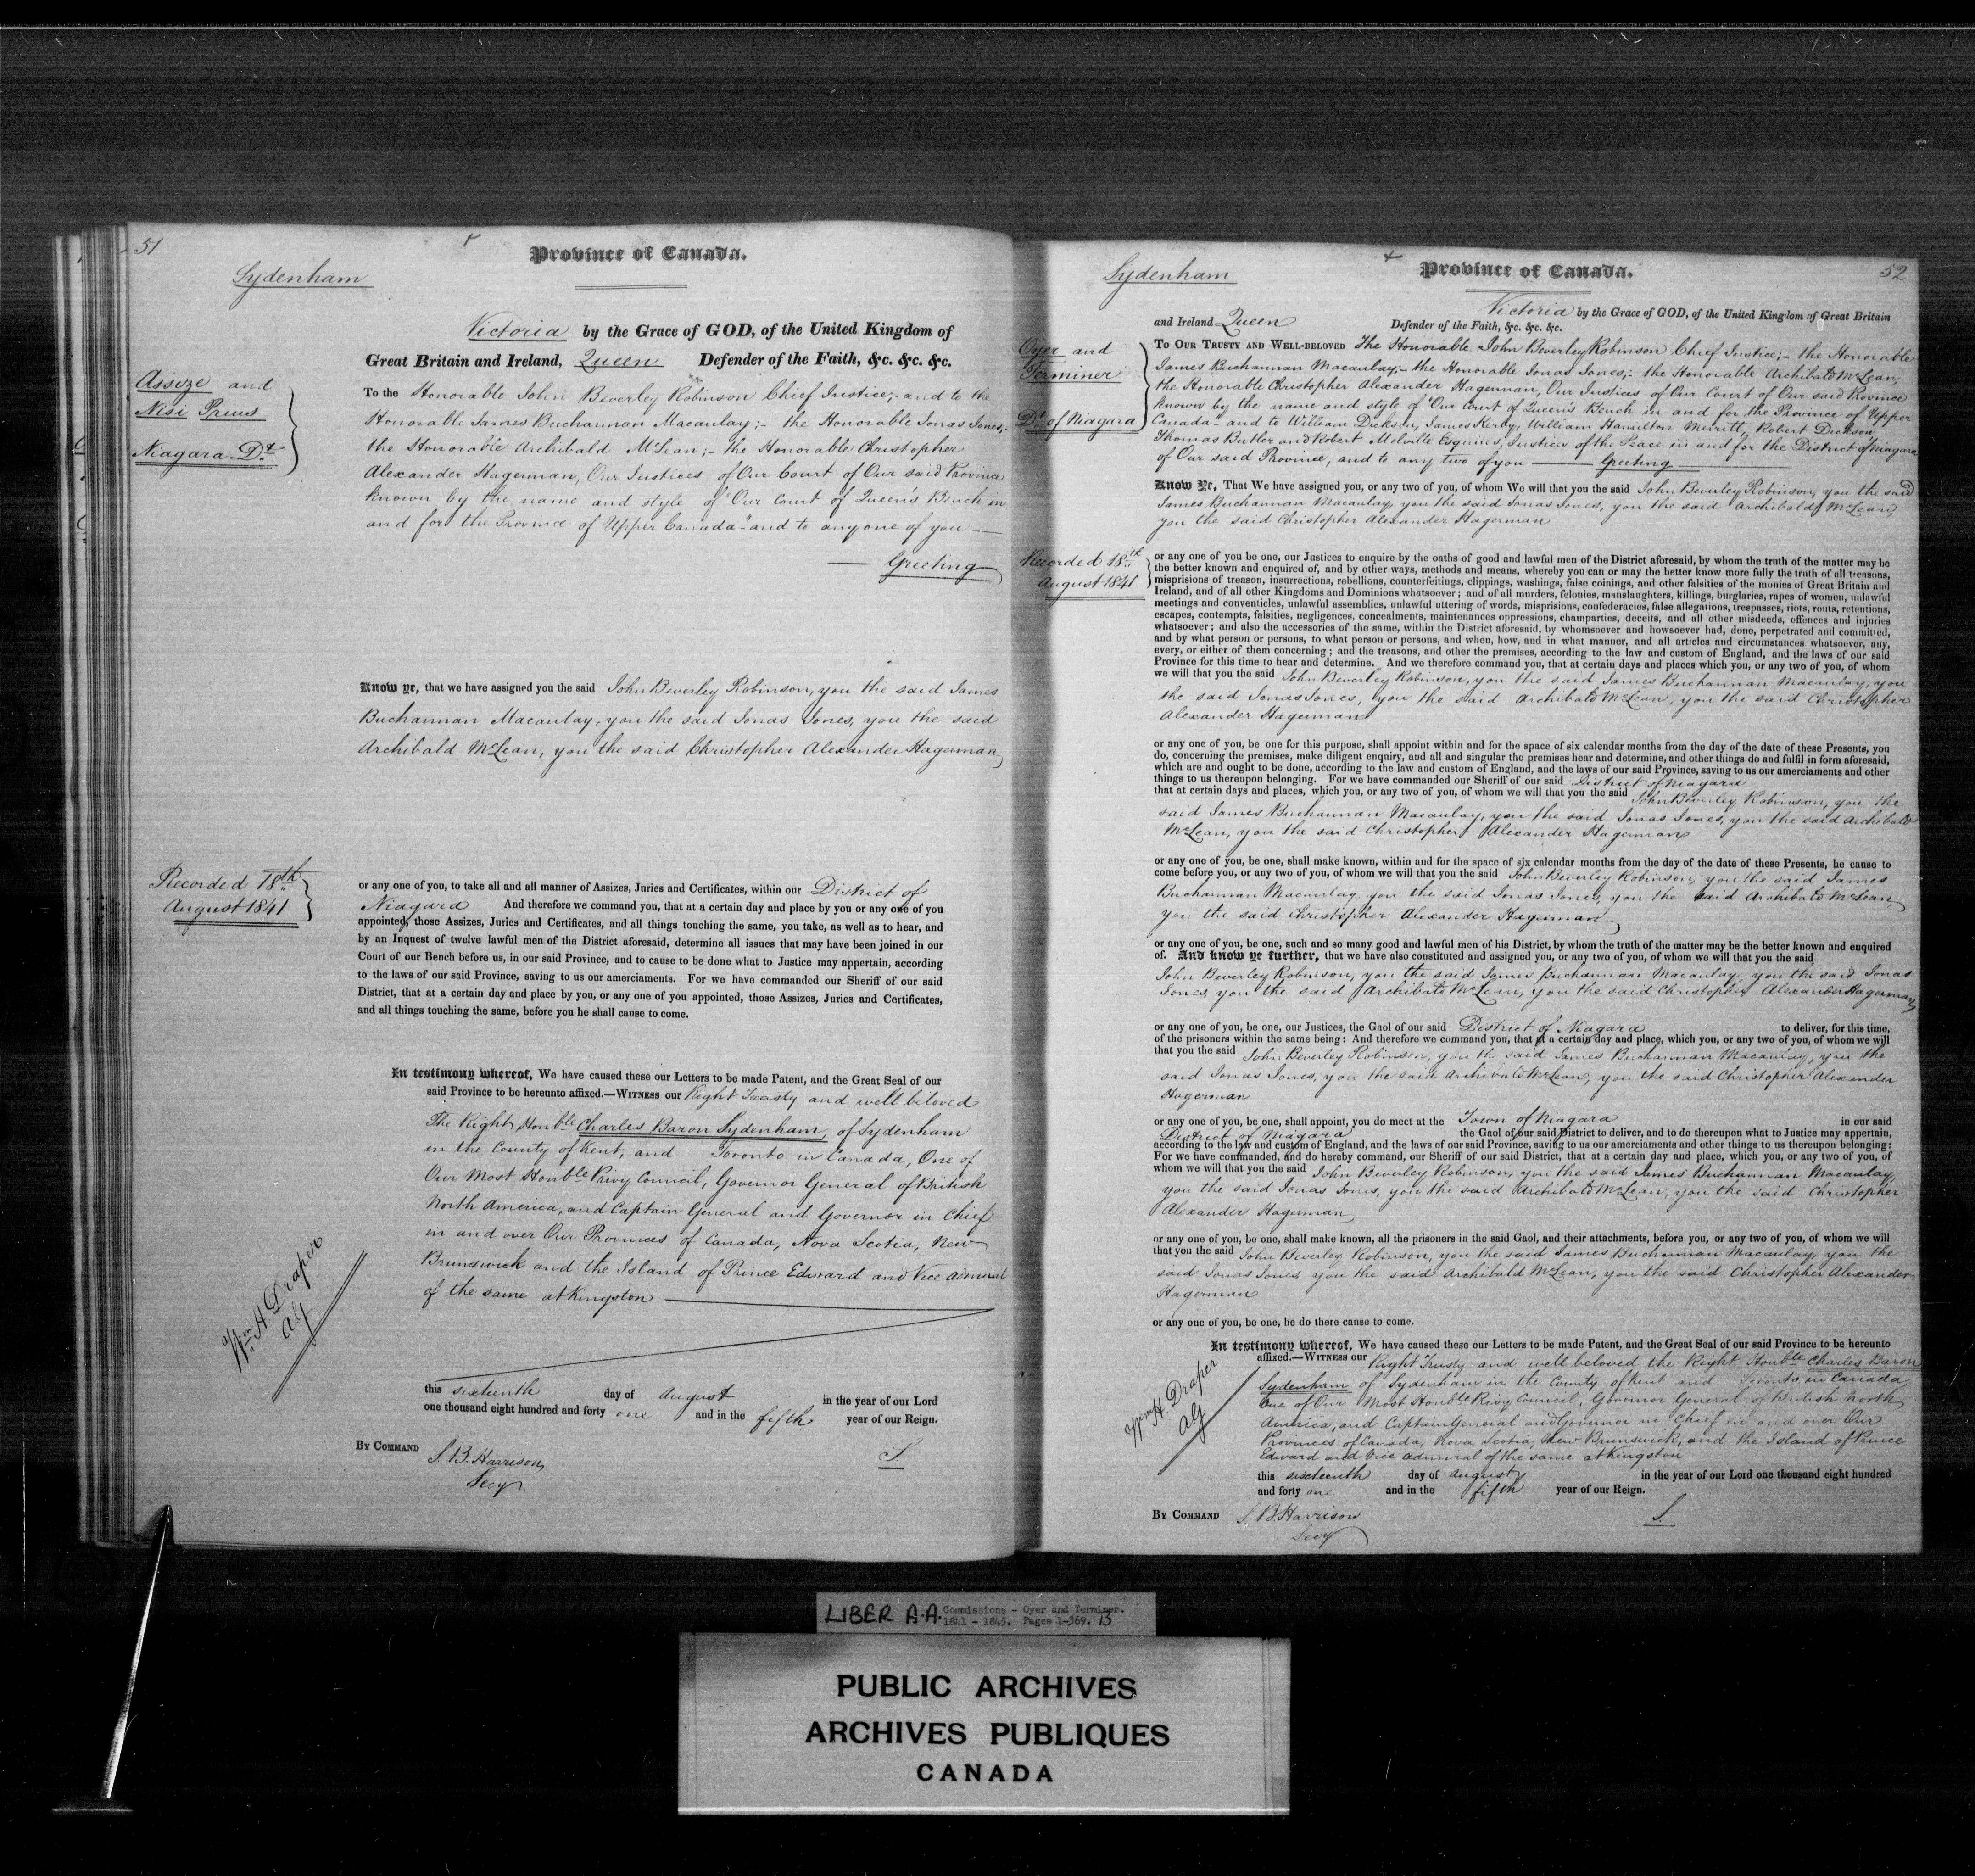 51
Province of Canada.
Sydenham
Victoria by the Grace of GOD, of the United Kingdom of
Great Britain and Ireland, Queen Defender of the Faith, &c. &c. &c.
Assize and
Nisi Prius
Niagara Dt
To the Honorable John Beverley Robinson Chief Justice;- and to the
Honorable James Buchannan Macaulay;- the Honorable Jonas Jones;-
the Honorable Archibald McLean;- the Honorable Christopher
Alexander Hagerman, Our Justices of Our Court of Our said Province
known by the name and style of "Our Court of Queen's Bench in
and for the Province of Upper Canada" and to any one of you —
— Greeting
Know ye, that we have assigned you the said John Beverley Robinson, you the said James
Buchannan Macaulay, you the said Jonas Jones, you the said
Archibald McLean, you the said Christopher Alexander Hagerman
Recorded 18th
August 1841
or any one of you, to take all and all manner of Assizes, Juries and Certificates, within our District of
Niagara And therefore we command you, that at a certain day and place by you or any one of you
appointed, those Assizes, Juries and Certificates, and all things touching the same, you take, as well as to hear, and
by an Inquest of twelve lawful men of the District aforesaid, determine all issues that may have been joined in our
Court of our Bench before us, in our said Province, and to cause to be done what to Justice may appertain, according
to the laws of our said Province, saving to us our amerciaments. For we have commanded our Sheriff of our said
District, that at a certain day and place by you, or any one of you appointed, those Assizes, Juries and Certificates,
and all things touching the same, before you he shall cause to come.
In testimony whereof, We have caused these our Letters to be made Patent, and the Great Seal of our
said Province to be hereunto affixed.—WITNESS our Right Trusty and well beloved
The Right Honble Charles Baron Sydenham, of Sydenham
in the County of Kent, and Toronto in Canada, One of
Our Most Honble Privy Council, Governor General of British
North America, and Captain General and Governor in Chief
in and over Our Provinces of Canada, Nova Scotia, New
Brunswick and the Island of Prince Edward and Vice Admiral
of the same at Kingston
Wm H Draper
AG
this sixteenth day of August in the year of our Lord
one thousand eight hundred and forty one and in the fifth year of our Reign.
BY COMMAND
S. B. Harrison
Secy
S.
52
Province of Canada.
Sydenham
Victoria by the Grace of GOD, of the United Kingdom of Great Britain
and Ireland Queen Defender of the Faith, &c. &c. &c.
Oyer and
Terminer
Dt of Niagara
TO OUR TRUSTY AND WELL-BELOVED The Honorable John Beverley Robinson Chief Justice;- the Honorable
James Buchannan Macaulay;- the Honorable Jonas Jones;- the Honorable Archibald McLean,
the Honorable Christopher Alexander Hagerman, Our Justices of Our Court of Our said Province
known by the name and style of "Our Court of Queen's Bench in and for the Province of Upper
Canada" and to William Dickson, James Kerby, William Hamilton Merritt, Robert Dickson
Thomas Butler and Robert Melville Esquires, Justices of the Peace in and for the District of Niagara
of Our said Province, and to any two of you — Greeting —
Know Ye, That We have assigned you, or any two of you, of whom We will that you the said John Beverley Robinson, you the said
James Buchannan Macaulay, you the said Jonas Jones, you the said Archibald McLean,
you the said Christopher Alexander Hagerman
Recorded 18th
August 1841
or any one of you be one, our Justices to enquire by the oaths of good and lawful men of the District aforesaid, by whom the truth of the matter may be
the better known and enquired of, and by other ways, methods and means, whereby you can or may the better know more fully the truth of all treasons,
misprisions of treason, insurrections, rebellions, counterfeitings, clippings, washings, false coinings, and other falsities of the monies of Great Britain and
Ireland, and of all other Kingdoms and Dominions whatsoever; and of all murders, felonies, manslaughters, killings, burglaries, rapes of women, unlawful
meetings and conventicles, unlawful assemblies, unlawful uttering of words, misprisions, confederacies, false allegations, trespasses, riots, routs, retentions,
escapes, contempts, falsities, negligences, concealments, maintenances oppressions, champarties, deceits, and all other misdeeds, offences and injuries
whatsoever; and also the accessories of the same, within the District aforesaid, by whomsoever and howsoever had, done, perpetrated and committed,
and by what person or persons, to what person or persons, and when, how, and in what manner, and all articles and circumstances whatsoever, any,
every, or either of them concerning; and the treasons, and other the premises, according to the law and custom of England, and the laws of our said
Province for this time to hear and determine. And we therefore command you, that at certain days and places which you, or any two of you, of whom
we will that you the said John Beverley Robinson, you the said James Buchannan Macaulay, you
the said Jonas Jones, you the said Archibald McLean, you the said Christopher
Alexander Hagerman
or any one of you, be one for this purpose, shall appoint within and for the space of six calendar months from the day of the date of these Presents, you
do, concerning the premises, make diligent enquiry, and all and singular the premises hear and determine, and other things do and fulfil in form aforesaid,
which are and ought to be done, according to the law and custom of England, and the laws of our said Province, saving to us our amerciaments and other
things to us thereupon belonging. For we have commanded our Sheriff of our said District of Niagara
that at certain days and places, which you, or any two of you, of whom we will that you the said John Beverley Robinson, you the
said James Buchannan Macaulay, you the said Jonas Jones, you the said Archibald
McLean, you the said Christopher Alexander Hagerman
or any one of you, be one, shall make known, within and for the space of six calendar months from the day of the date of these Presents, he cause to
come before you, or any two of you, of whom we will that you the said John Beverley Robinson, you the said James
Buchannan Macaulay, you the said Jonas Jones, you the said Archibald McLean,
you the said Christopher Alexander Hagerman
or any one of you, be one, such and so many good and lawful men of his District, by whom the truth of the matter may be the better known and enquired
of. And know ye further, that we have also constituted and assigned you, or any two of you, of whom we will that you the said
John Beverley Robinson, you the said James Buchannan Macaulay, you the said Jonas
Jones, you the said Archibald McLean, you the said Christopher Alexander Hagerman,
or any one of you, be one, our Justices, the Gaol of our said District of Niagara to deliver, for this time,
of the prisoners within the same being: And therefore we command you, that at a certain day and place, which you, or any two of you, of whom we will
that you the said John Beverley Robinson, you the said James Buchannan Macaulay, you the
said Jonas Jones, you the said Archibald McLean, you the said Christopher Alexander
Hagerman
or any one of you, be one, shall appoint, you do meet at the Town of Niagara in our said
District of Niagara the Gaol of our said District to deliver, and to do thereupon what to Justice may appertain,
according to the law and custom of England, and the laws of our said Province, saving to us our amerciaments and other things to us thereupon belonging:
For we have commanded, and do hereby command, our Sheriff of our said District, that at a certain day and place, which you, or any two of you, of
whom we will that you the said John Beverley Robinson, you the said James Buchannan Macaulay,
you the said Jonas Jones, you the said Archibald McLean, you the said Christopher
Alexander Hagerman
or any one of you, be one, shall make known, all the prisoners in the said Gaol, and their attachments, before you, or any two of you, of whom we will
that you the said John Beverley Robinson, you the said James Buchannan Macaulay, you the
said Jonas Jones you the said Archibald McLean, you the said Christopher Alexander
Hagerman
or any one of you, be one, he do there cause to come.
In testimony whereof, We have caused these our Letters to be made Patent, and the Great Seal of our said Province to be hereunto
affixed.—WITNESS our Right Trusty and well beloved the Right Honble Charles Baron
Sydenham of Sydenham in the County of Kent and Toronto in Canada,
One of Our Most Honble Privy Council, Governor General of British North
America, and Captain General and Governor in Chief in and over Our
Provinces of Canada, Nova Scotia, New Brunswick, and the Island of Prince
Edward and Vice Admiral of the same at Kingston
Wm H. Draper
AG
this sixteenth day of August in the year of our Lord one thousand eight hundred
and forty one and in the fifth year of our Reign.
BY COMMAND S. B. Harrison
Secy
S.
LIBER A.A. Commissions - Oyer and Terminer.
1841 - 1845. Pages 1-369. 13
PUBLIC ARCHIVES
ARCHIVES PUBLIQUES
CANADA